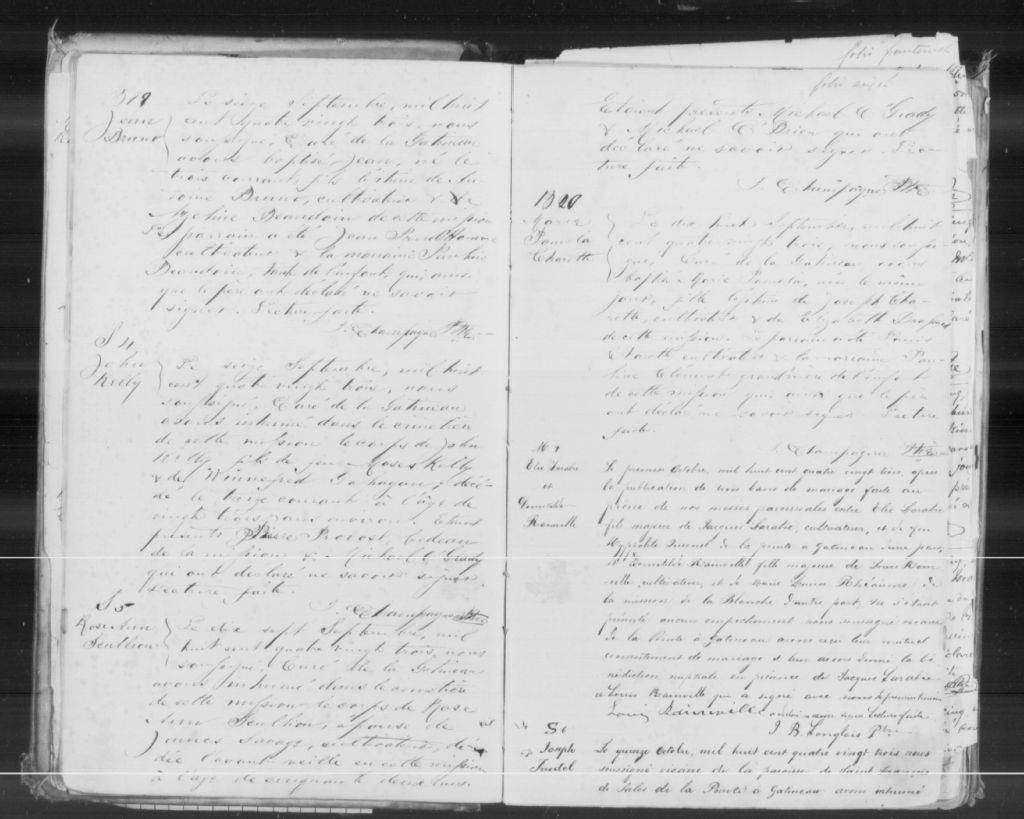 319
Jean
Bruno
Le seize Septembre, mil huit
cent quatre vingt trois, nous
soussigné, Curé de la Gatineau
avons baptisé Jean, né le
trois courant, fils légitime de An-
toine Bruno, cultivateur & de
Beaudoin de cette mission
Le parrain a été Jean Prud'Homme
cultivateur & la marraine
Beaudoin, tante de l'enfant, qui ainsi
que le père ont déclaré ne savoir
signer. Lecture faite.
J. Champagne Ptre
S 4
John
Kelly
Le seize Septembre, mil huit
cent quatre vingt trois, nous
soussigné, Curé de la Gatineau
avons inhumé dans le cimetière
de cette mission le corps de John
Kelly fils de feu Moses Kelly
& de Winnefred Gahagan, décé-
dé le treize courant à l'âge de
vingt trois ans environ. Etaient
présents Pierre Provost, bedeau
de la mission & Michael O'Grady
qui ont déclaré ne savoir signer.
Lecture faite.
J. Champagne Ptre
S 5
Rose Ann
Scullion
Le dix sept Septembre, mil
huit cent quatre vingt trois, nous
soussigné, Curé de la Gatineau
avons inhumé dans le cimetière
de cette mission le corps de Rose
Ann Scullion, épouse de
James Savage, cultivateur, décé-
dée l'avant veille en cette mission
à l'âge de cinquante deux ans.
folio
folio seize
Etaient présents Michael O'Grady
& Michael O'Brien qui ont
déclaré ne savoir signer. Lec-
ture faite.
J. Champagne Ptre
1320
Marie
Pamela
Charette
Le dix huit Septembre, mil huit
cent quatre vingt trois, nous soussi-
gné, Curé de la Gatineau avons
baptisé Marie Pamela, née le même
jour, fille légitime de Joseph Cha-
rette, cultivateur & de Elizabeth
de cette mission. Le parrain a été Louis
Charette cultivateur & la marraine Pau-
line Clément grand'mère de l'enfant
de cette mission qui ainsi que le père
ont déclaré ne savoir signer. Lecture
faite.
J. Champagne Ptre
M 9
Elie Larabie
et
Domitilde
Rainville
Le premier Octobre, mil huit cent quatre vingt trois, après
la publication de trois bans de mariage faite au
prône de nos messes paroissiales entre Elie Larabie
fils majeur de Jacques Larabie, cultivateur, et de feu
Hyppolite Quesnel de la pointe à Gatineau d'une part,
et Domitilde Rainville fille majeure de Louis Rain-
ville, cultivateur, et de Marie Louise de
la mission de la Blanche d'autre part, ne s'étant
présenté aucun empêchement nous soussigné vicaire
de la Pointe à Gatineau avons reçu leur mutuel
consentement de mariage et leur avons donné la bé-
nédiction nuptiale en présence de Jacques Larabie
& Louis Rainville qui a signé avec nous
Louis Rainville Lecture faite.
J. B. Langlais Ptre
S 6
Joseph
Trudel
Le quinze Octobre, mil huit cent quatre vingt trois nous
soussigné vicaire de la paroisse de Saint François
de Sales de la Pointe à Gatineau avons inhumé